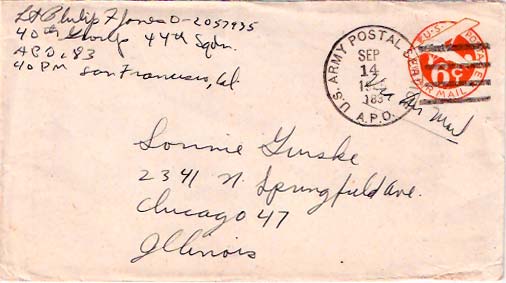 Lt Philip F Jones O-2057935
40th Group 44th Sqdn.
APO 183
% PM San Francisco, Cal
U.S. ARMY POSTAL SER
SEP
14
183
A.P.O.
U.S. POSTAGE
6¢
AIR MAIL
Via Air Mail
Lonnie Ginske
2341 N. Springfield Ave.
Chicago 47
Illinois